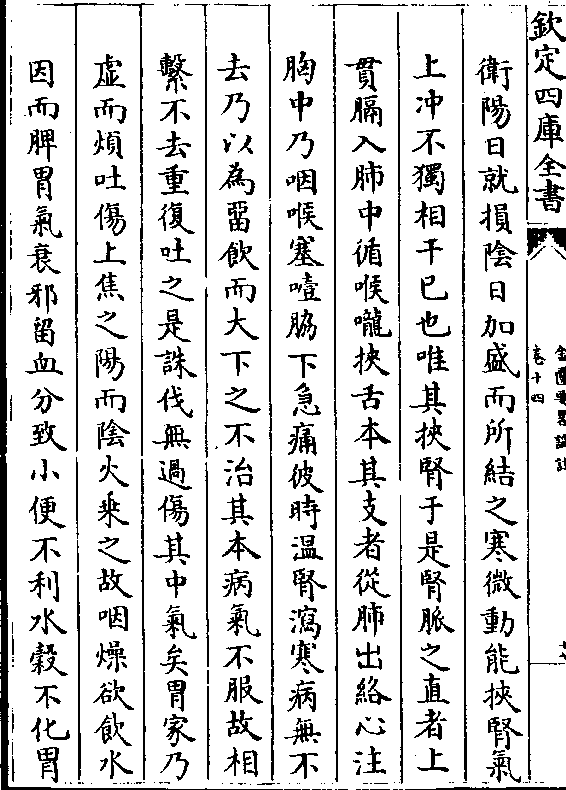 欽定四庫全書
金匱要略論註
卷十四
衛陽日就損陰日加盛而所結之寒微動能挾腎氣
上沖不獨相干已也唯其挾腎于是腎脈之直者上
貫膈入肺中循喉嚨挾舌本其支者從肺出絡心注
胸中乃咽喉塞噎脇下急痛彼時溫腎瀉寒病無不
去乃以為留飲而大下之不治其本病氣不服故相
繫不去重復吐之是誅伐無過傷其中氣矣胃家乃
虚而煩吐傷上焦之陽而陰火乗之故咽燥欲飲水
因而脾胃氣衰邪留血分致小便不利水穀不化胃